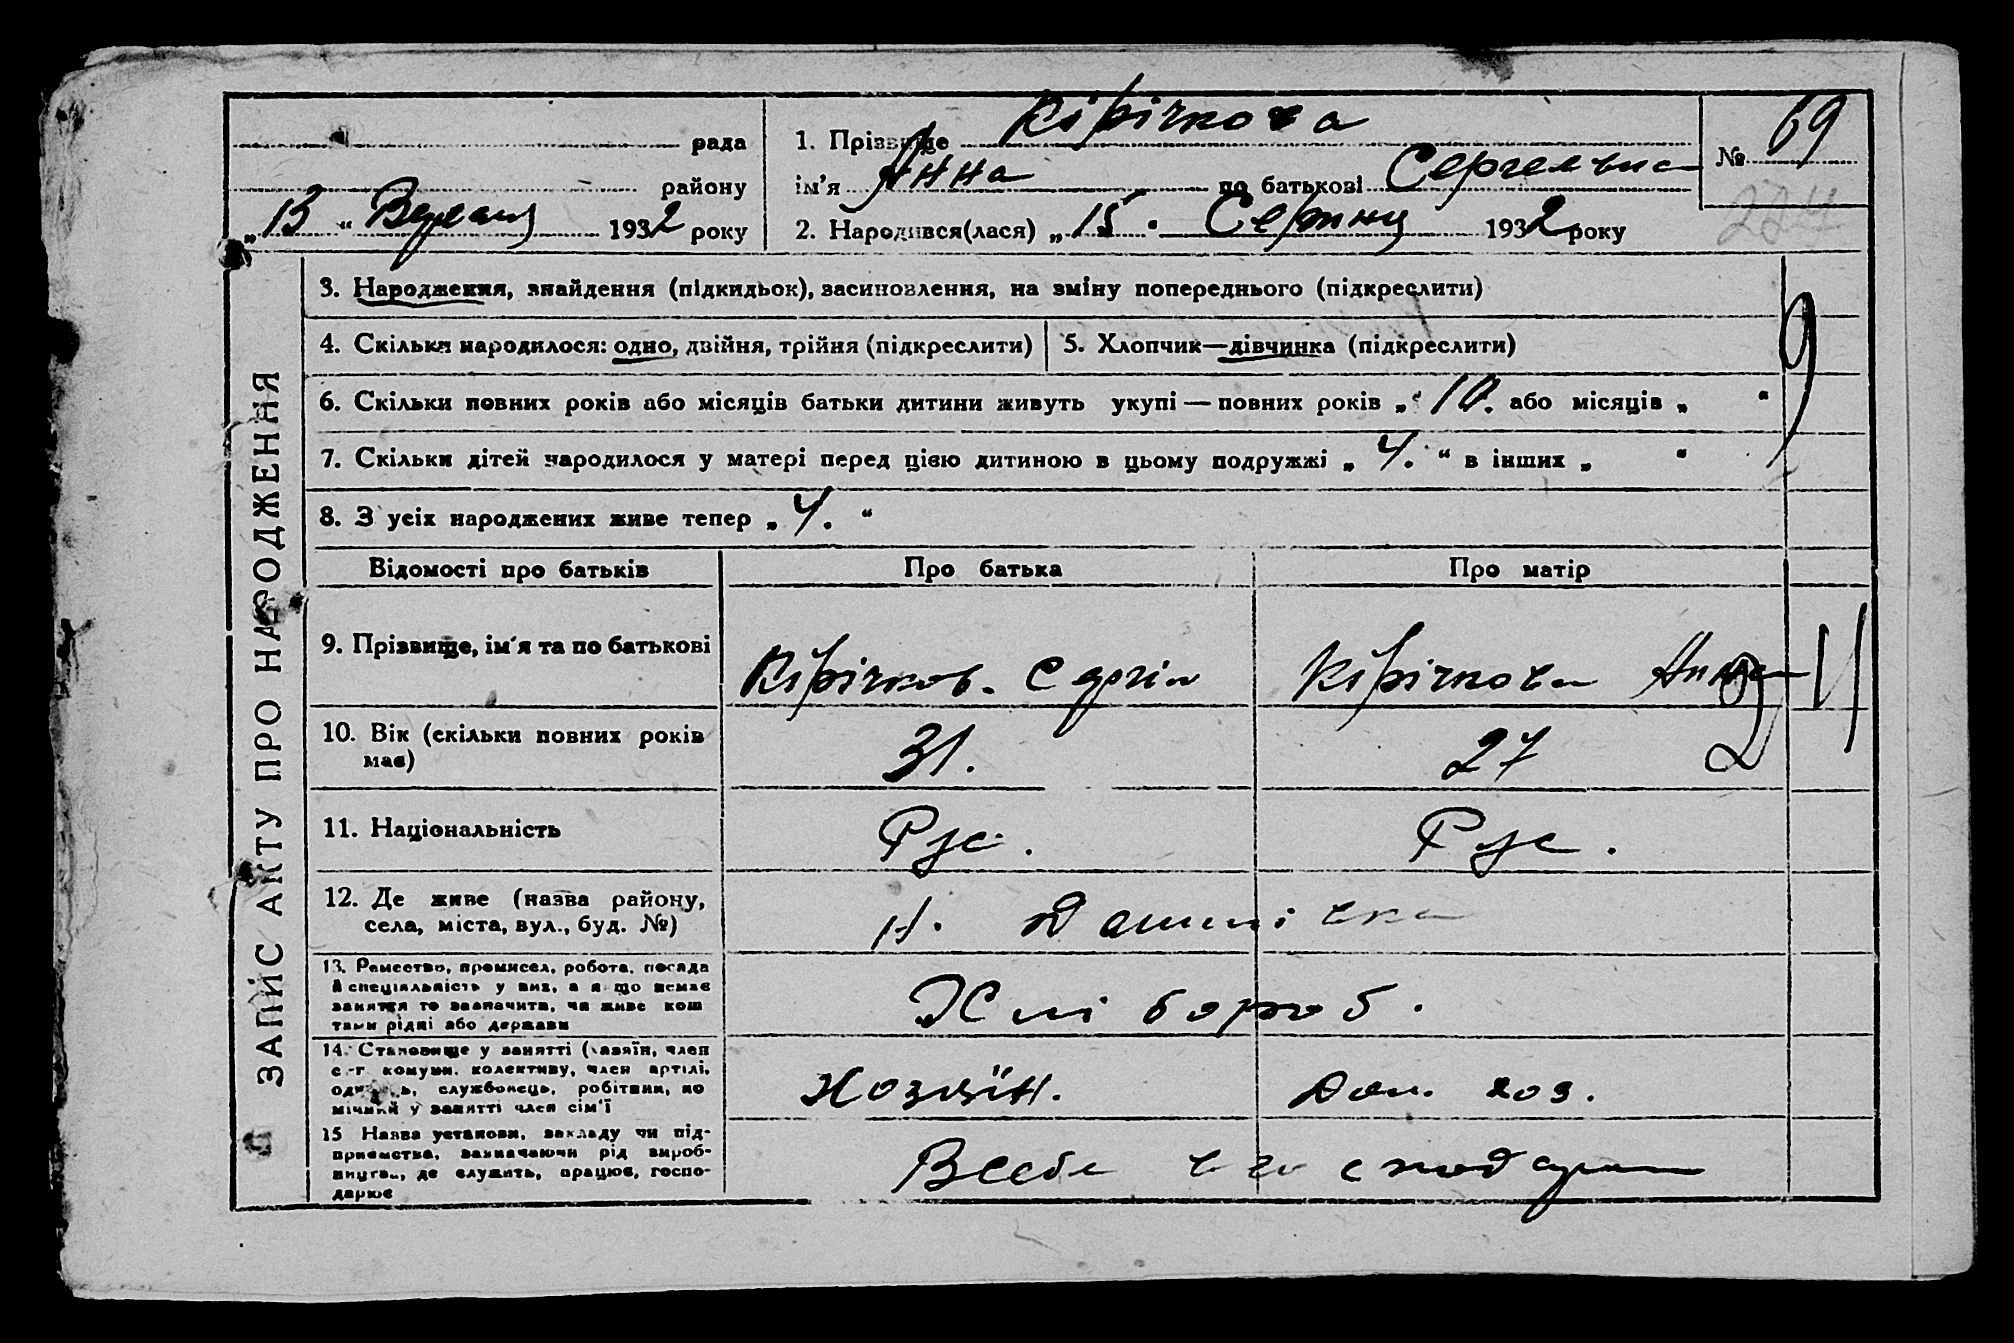 рада
1. Прізвище Кірічкова
№ 69
району
ім'я Анна по батькові Сергеевна
„13“ Вересня 1932 року
2. Народився(лася) „15. Серпня 1932 року
224
3. Народження, знайдення (підкидьок), засиновлення, на зміну попереднього (підкреслити)
4. Скільки народилося: одно, двійня, трійня (підкреслити)
5. Хлопчик—дівчинка (підкреслити)
9
6. Скільки повних років або місяців батьки дитини живуть укупі — повних років „10. або місяців „ “
7. Скільки дітей народилося у матері перед цією дитиною в цьому подружжі „4.“ в інших „ “
8. З усіх народжених живе тепер „4.“
Відомості про батьків
Про батька
Про матір
9. Прізвище, ім'я та по батькові
Кірічков. Сергій
Кірічкова Анна
10. Вік (скільки повних років
має)
31.
27
11. Національність
Рус.
Рус.
12. Де живе (назва району,
села, міста, вул., буд. №)
Н.
13. Ремество, промисел, робота, посада
й спеціяльність у них, а якщо немає
заняття то зазначити, чи живе кош
тами рідні або держави
Хлібороб.
14. Становище у занятті (хазяїн, член
с.-г. комуни, колективу, член артілі,
службовець, робітник, по
мічний у занятті член сім'ї
Хозяїн.
Дом. хоз.
15 Назва установи, закладу чи під-
приємства, зазначаючи рід вироб-
ництва, де служить, працює, госпо-
дарює
Всебе в господарстві
ЗАПИС АКТУ ПРО НАРОДЖЕННЯ